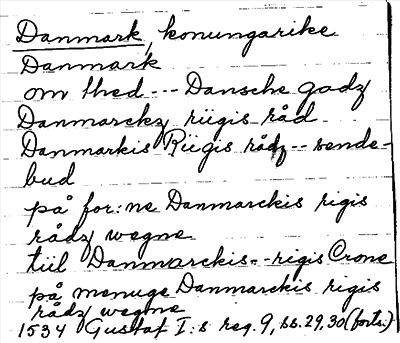 Danmark, konungarike
Danmark
om thed --- Dansche godz
Danmarckz riigis råd
Danmarkis Riigis rådz -- sende-
bud
på for:ne Danmarckis rigis
rådz wegne
tiil Danmarckis -- rigis Crone
på menuge Danmarckis rigis
rådz wegne
1534 Gustaf I:s reg. 9, ss. 29, 30 (forts.)